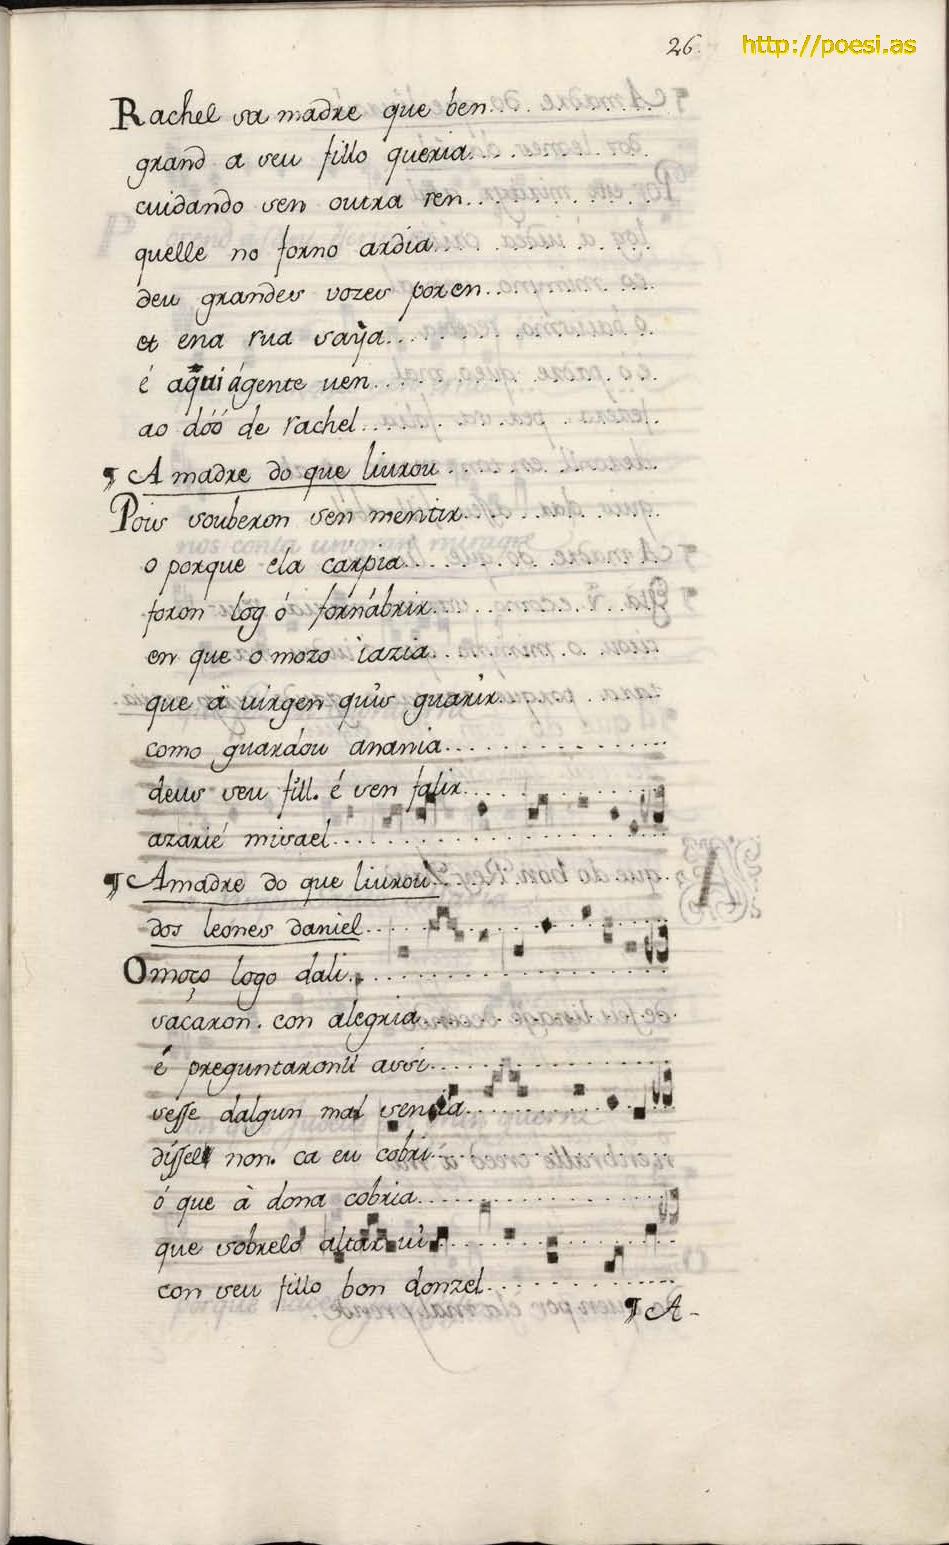 26.
http://poesi.as
Rachel sa madre que ben
grand a seu fillo queria
cuidando sen outra ren
quelle no forno ardia
deu grandes vozes poren
et ena rua saýa
é aquí ágente uen
ao dóó de rachel
¶ A madre do que liurou
Pois souberon sen mentir
o porque ela carpia
foron log ó fornábrir
en que o mozo iazia
que a uirgen quis guarir
como guardou anania
deus seu fill. é sen falir
azarié misael
¶ Amadre do que liurou
dos leónes daniel
O moço logo dali
sacaron. con alegria
é preguntaronll assi
sesse dalgun mal sentia
dissell non. ca eu cobri
ó que à dona cobria
que sobrelo altar ui
con seu fillo bon donzel
¶ A-